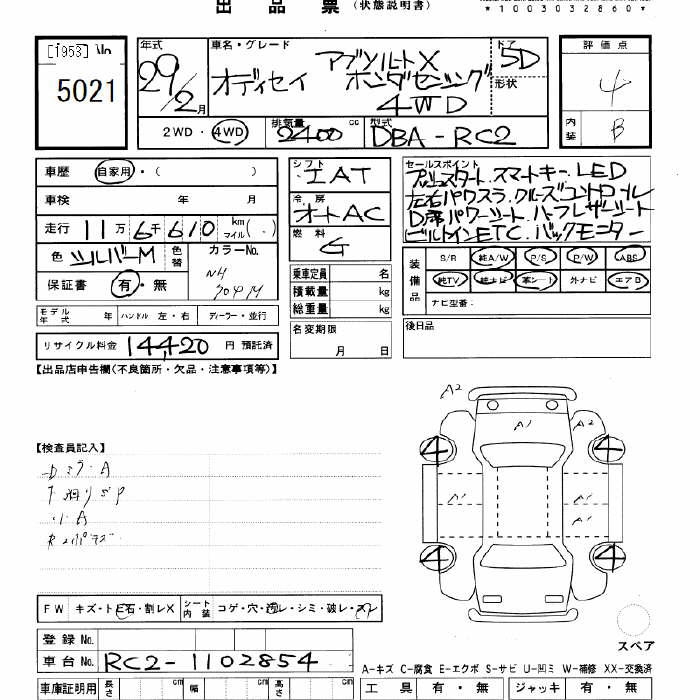 出品票（状態説明書）
*1003032860*
[1953] No
5021
年式 29/2月
車名・グレード オデッセイ アブソルートX ホンダセンシング 4WD
ドア 5D
形状
2WD・4WD
排気量 2400 cc
型式 DBA-RC2
評価点 4
内装 B
車歴 自家用・( )
車検 年 月
走行 11万6千610 km マイル( . )
色 シルバーM 色替
カラーNo. NH 704M
保証書 有・無
モデル年式 年 ハンドル 左・右 ディーラー・並行
リサイクル料金 14,420円 預託済
シフト IAT
冷房 オートAC
燃料 G
乗車定員 名
積載量 kg
総重量 kg
名変期限 月 日
セールスポイント
プッシュスタート.スマートキー.LED
左右パワスラ.クルーズコントロール
D席パワーシート.ハーフレザーシート
ビルトインETC.バックモニター
装備品
S/R 純A/W P/S P/W ABS
純TV 純ナビ 革シート 外ナビ エアB
ナビ型番:
後日品
【出品店申告欄(不良箇所・欠品・注意事項等)】
【検査員記入】
A
A
A2
A1 A2
4 4
A1 A1
A1
4 4
スペア
FW キズ・ト 石・割レX シート内装 コゲ・穴・レ・シミ・破レ・スレ
登録No.
車台No. RC2-1102854
車庫証明用 長さ cm 幅 cm 高さ cm
A-キズ C-腐食 E-エクボ S-サビ U-凹ミ W-補修 XX-交換済
工具 有・無 ジャッキ 有・無